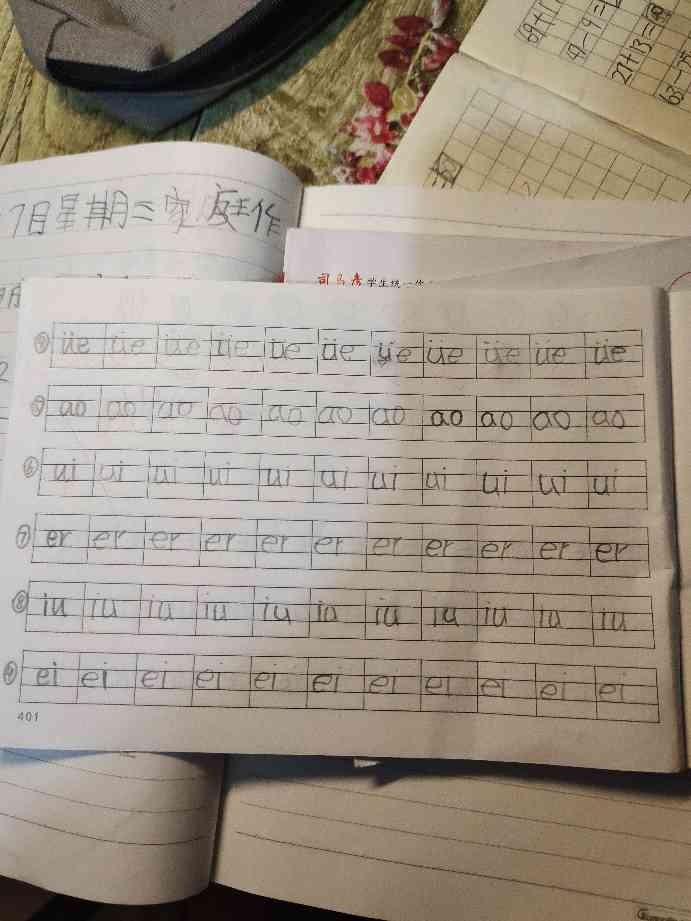 69+1
42-9=
27+13=
63-
7月星期三家庭作
司马彦 学生统一作
üe üe üe üe üe üe üe üe üe üe üe
ao ao ao ao ao ao ao ao ao ao ao
⑥ ui ui ui ui ui ui ui ui ui ui ui
⑦ er er er er er er er er er er er
⑧ iu iu iu iu iu iu iu iu iu iu iu
⑨ ei ei ei ei ei ei ei ei ei ei ei
401